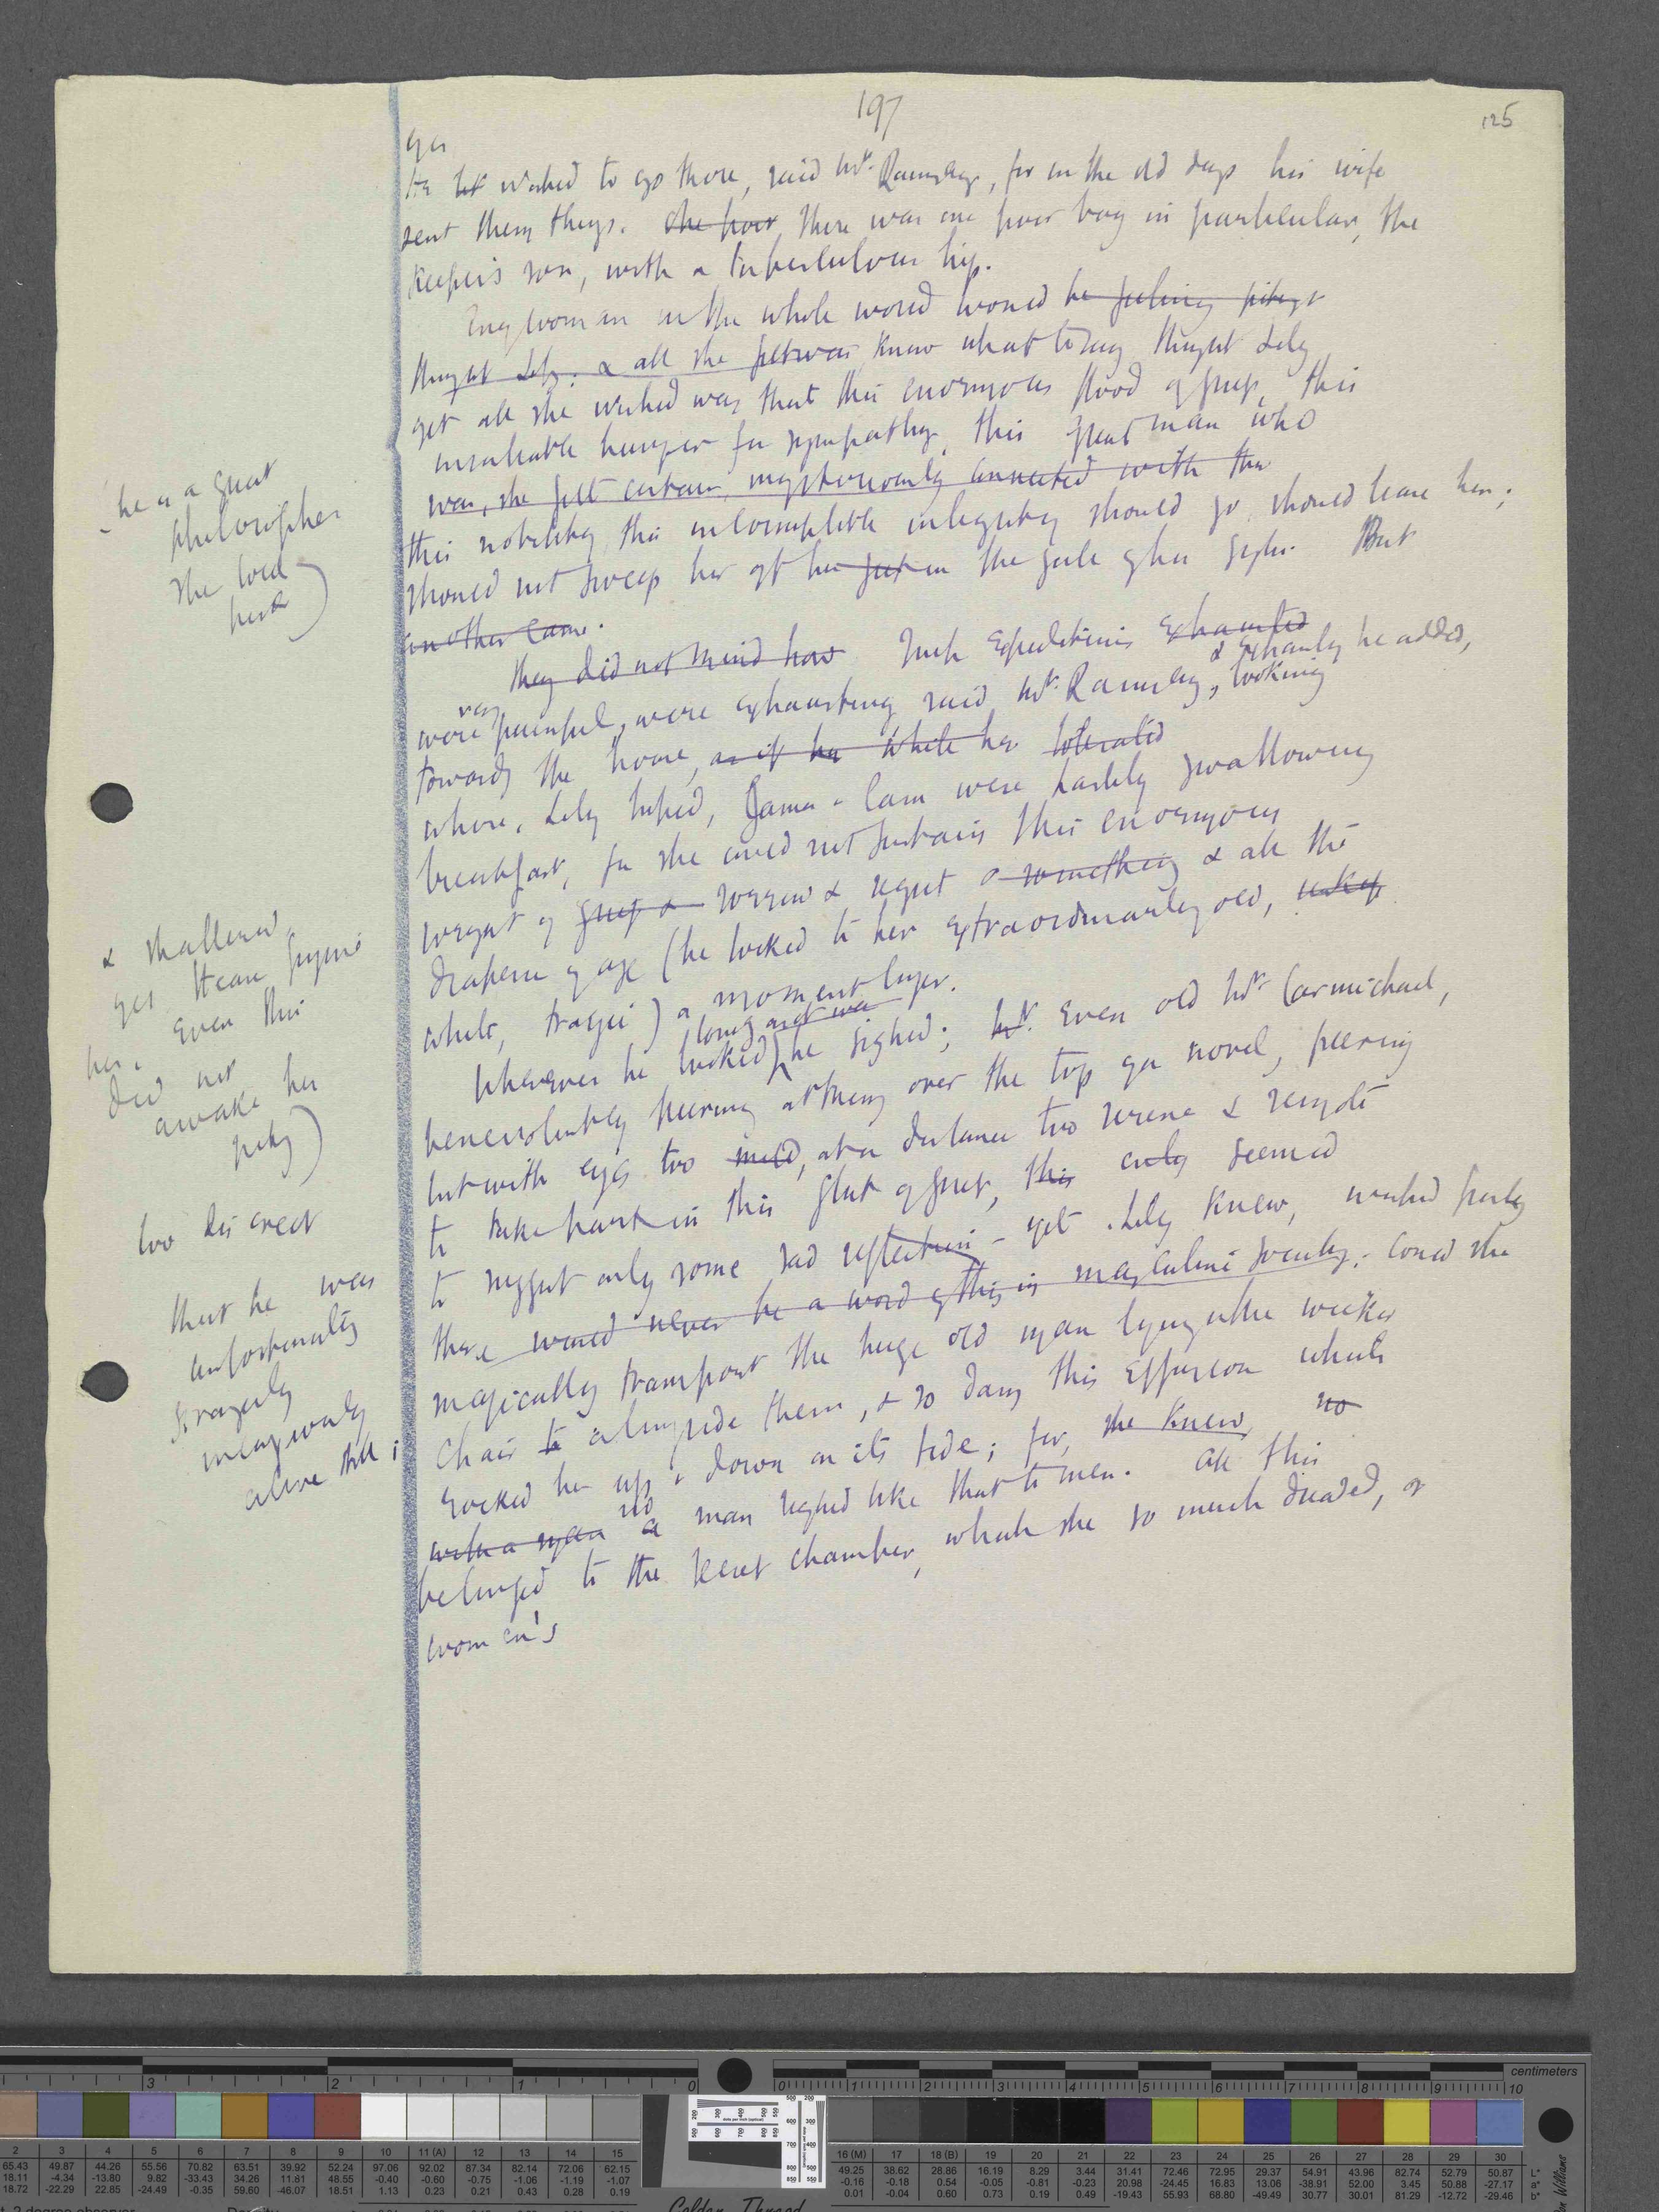 197
125
yes
He wished to go there, said Mr. Ramsay, for in the old days his wife
sent them things. She poor, there was one poor boy in particular, the
keeper's son, with a tuberculous hip.
Any woman in the whole world would be feeling pity
thought Lily; & all she felt was know what to say thought Lily
yet all she wished was that this enormous flood of grief, this
insatiable hunger for sympathy, this great man who
was, she felt certain, mysteriously connected with the
this nobility, this integrity should go, should leave her;
should not sweep her off her feet in the gale of his sighs. But
another came.
they did not mind how Such expeditions exhausted
& he added,
very
were painful, were exhausting said Mr. Ramsay, looking
towards the house, as if he while he tolerated
where, Lily hoped, James & Cam were hastily swallowing
breakfast, for she could not sustain this enormous
weight of grief & sorrow & regret & something & all the
draperies of age (he looked to her extraordinarily old,
white, tragic) a moment longer.
Wherever he looked, he sighed; Mr. Even old Mr Carmichael,
benevolently peering at them over the top of a novel, peering
but with eyes too mild, at a distance too serene & remote
to take part in this glut of grief, this only seemed
to suggest only some sad reflection - yet Lily knew,
there would never be a word of this in masculine society. Could she
magically transport the huge old man lying in the wicker
chair to alongside them, & so dam this effusion which
rocked her up & down on its tide; for, she knew, no
no
with a man a man sighed like that to men. All this
belonged to the secret chamber, which she so much dreaded, of
women's
(he is a great
philosopher
she told
herself)
& shattered,
yes Heaven forgive
her,
even this
did not
awake her
pity)
too discreet
that he was
unfortunately
strangely
alive still;
centimeters
Golden Thread